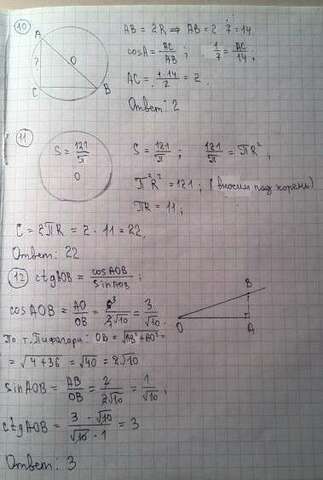 10
A
?
O
C
B
AB = 2R ⇒ AB = 2·7 = 14.
cosA = AC/AB ; 1/7 = AC/14 ;
AC = 1·14/7 = 2.
Ответ: 2
11
S = 121/π
O
S = 121/π ; 121/π = πR² ;
π²R² = 121 ; (вносим под корень)
πR = 11 ;
C = 2πR = 2 · 11 = 22.
Ответ: 22
12
ctgAOB = cosAOB/sinAOB ;
cosAOB = AO/OB = 6/2√10 = 3/√10.
По т. Пифагора: OB = √AB²+AO² =
= √4+36 = √40 = 2√10
sinAOB = AB/OB = 2/2√10 = 1/√10 ;
ctgAOB = 3 · √10/√10 · 1 = 3
Ответ: 3
B
O
A